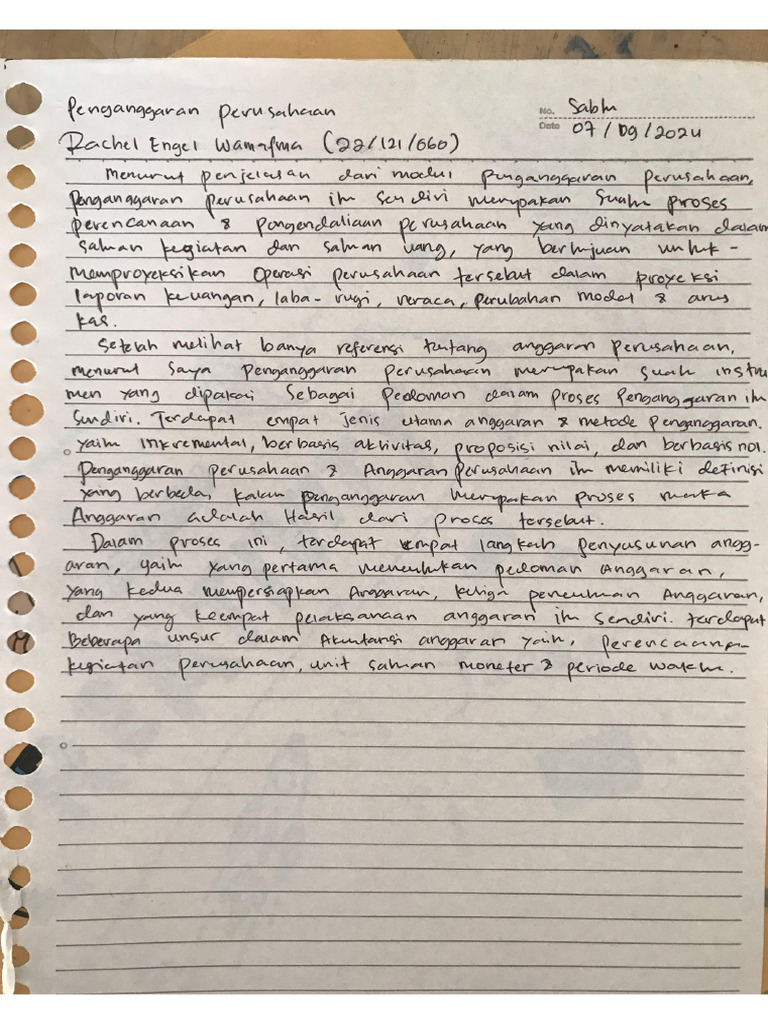 Penganggaran perusahaan
No. Sabtu
Date 07/09/2024
Rachel Engel Wamafma (22/121/660)
Menurut penjelasan dari modul penganggaran perusahaan,
penganggaran perusahaan itu sendiri merupakan suatu proses
perencanaan & pengendaliaan perusahaan yang dinyatakan dalam
satuan kegiatan dan satuan uang, yang bertujuan untuk -
memproyeksikan operasi perusahaan tersebut dalam proyeksi
laporan keuangan, laba-rugi, neraca, perubahan modal & arus
kas.
Setelah melihat banya referensi tentang anggaran perusahaan,
menurut saya penganggaran perusahaan merupakan suatu instru
men yang dipakai sebagai pedoman dalam proses penganggaran itu
sendiri. Terdapat empat jenis utama anggaran & metode penganggaran.
yaitu inkremental, berbasis aktivitas, proposisi nilai, dan berbasis nol.
Penganggaran perusahaan & Anggaran perusahaan itu memiliki definisi
yang berbeda, kalau penganggaran merupakan proses maka
Anggaran adalah Hasil dari proses tersebut.
Dalam proses ini, terdapat empat langkah penyusunan angg-
aran, yaitu yang pertama menentukan pedoman Anggaran,
yang kedua mempersiapkan Anggaran, ketiga penentuan Anggaran,
dan yang keempat pelaksanaan anggaran itu sendiri. terdapat
beberapa unsur dalam Akuntansi anggaran yaitu, perencaan
kegiatan perusahaan, unit satuan moneter & periode waktu.